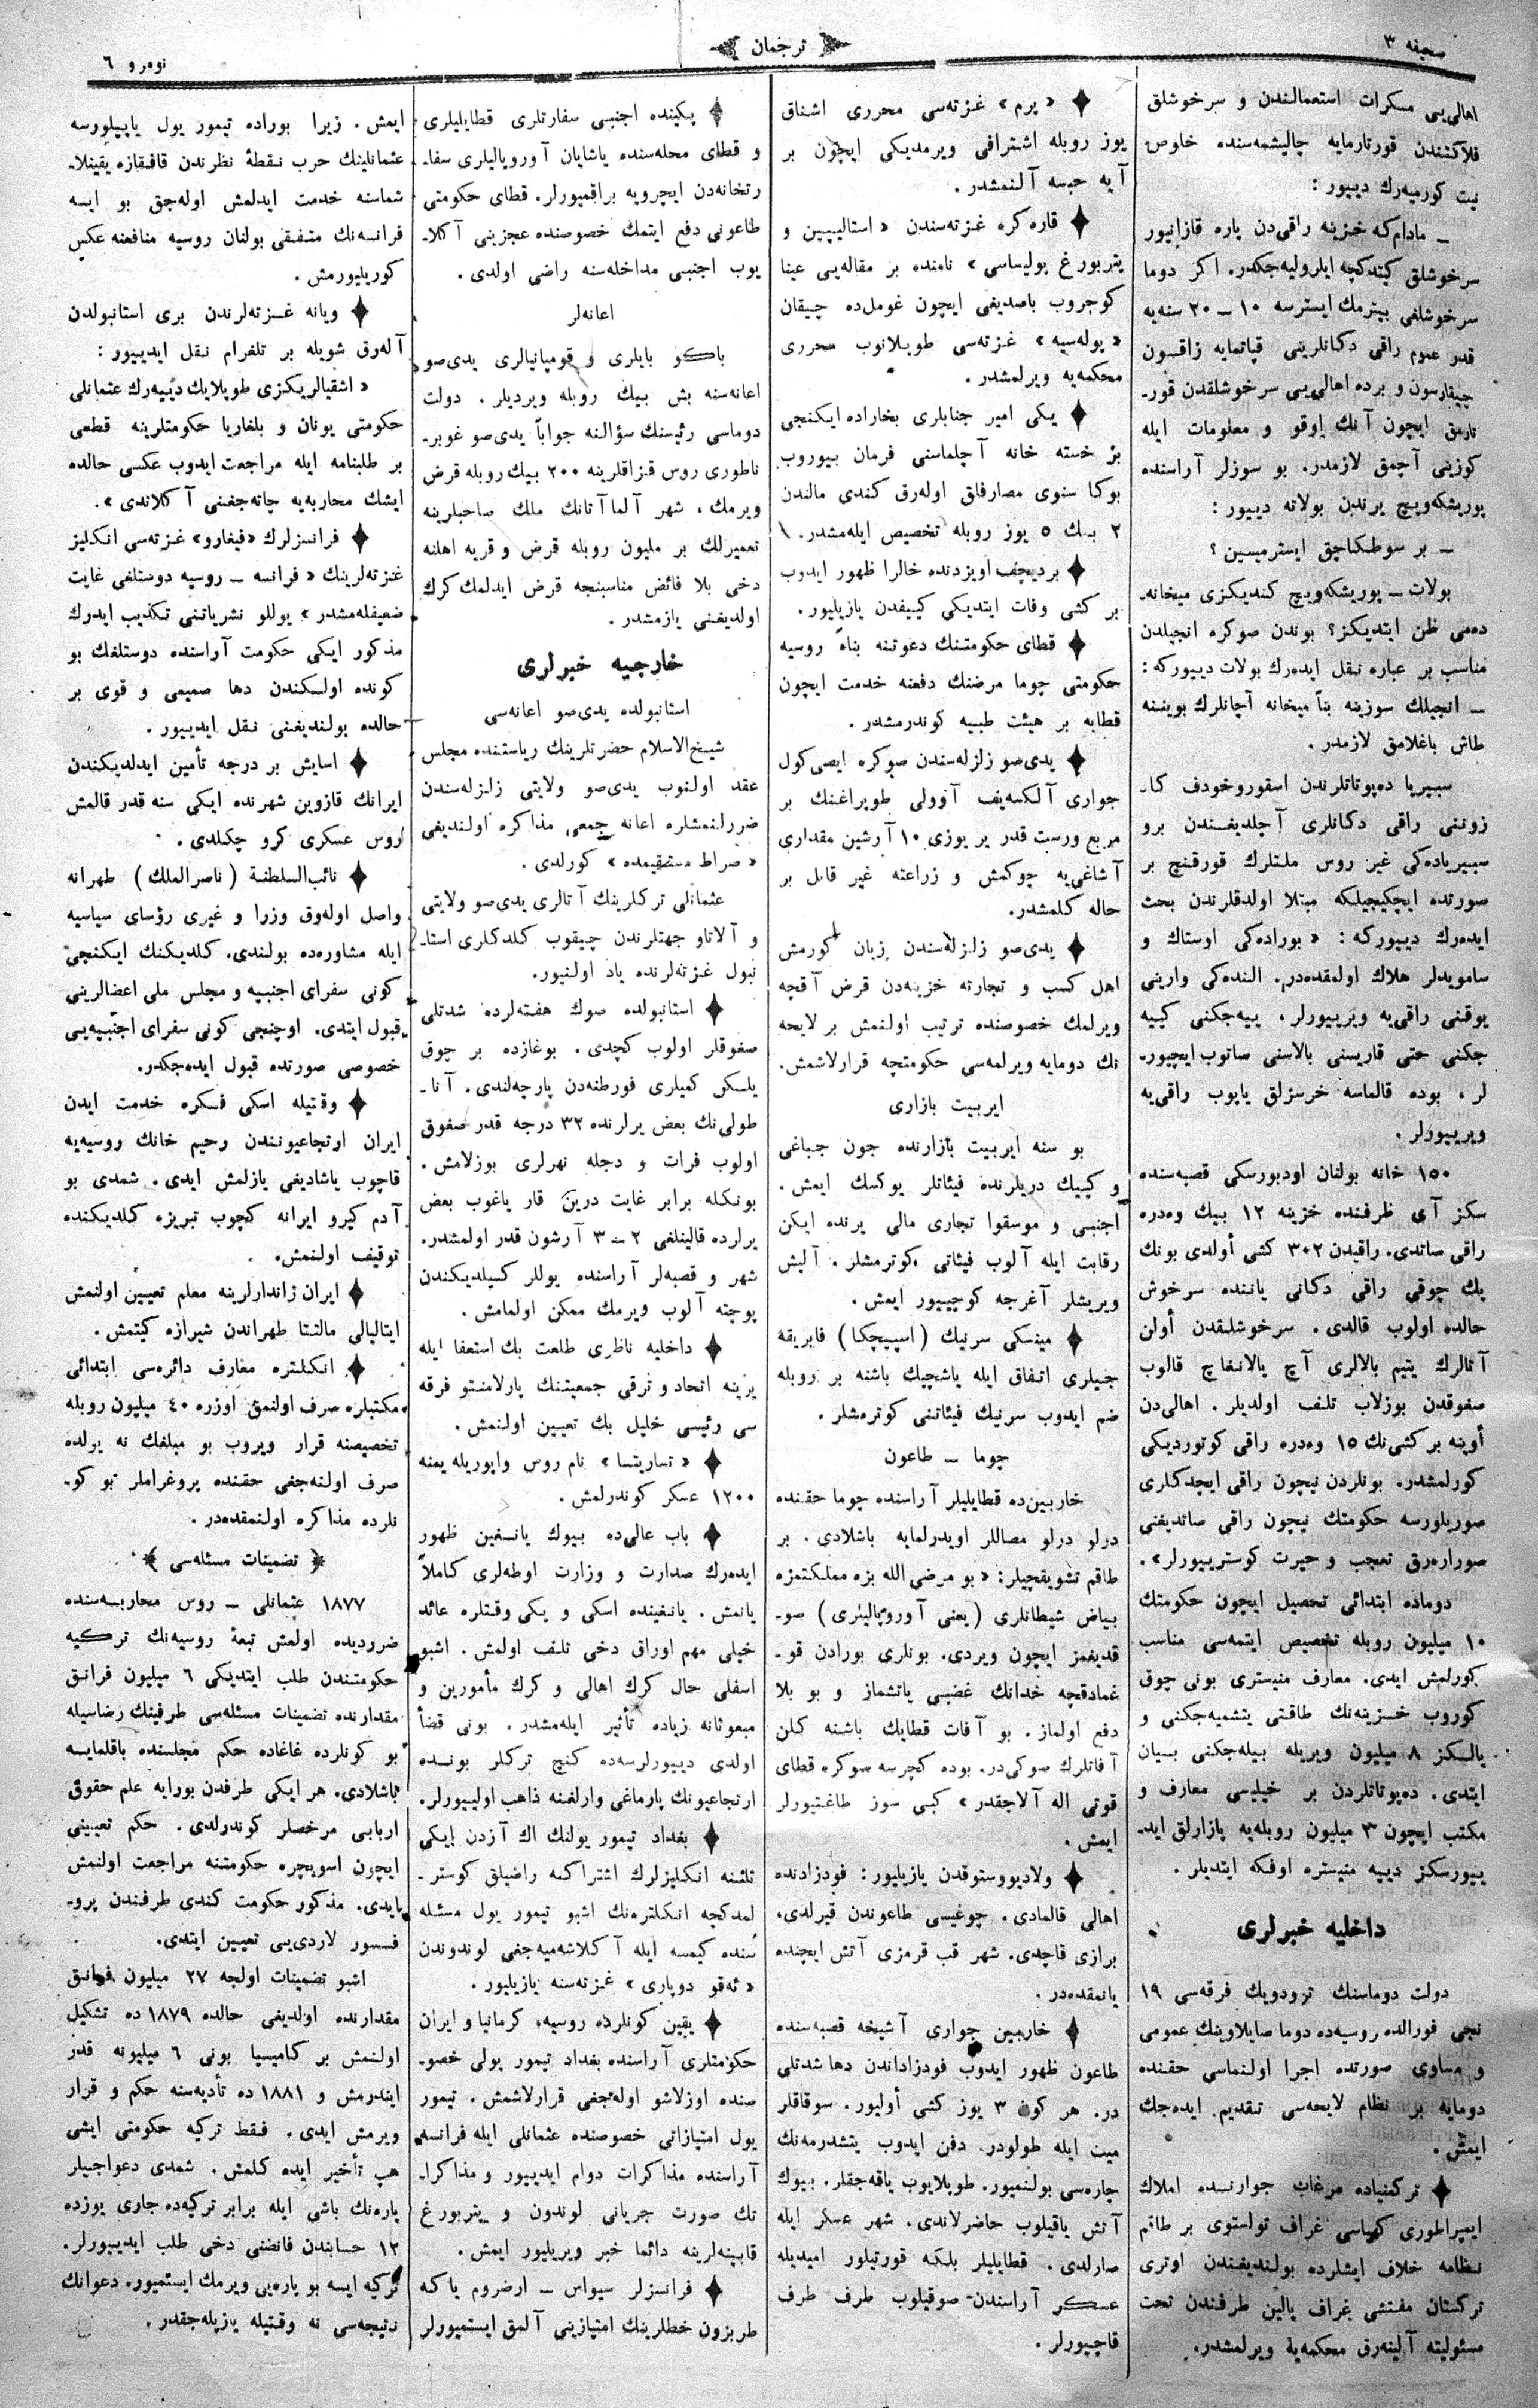 صحيفه ٣
ترجمان
نومرو ٦
اهالی‌یی مسكرات استعمالندن و سرخوشلق
فلاكتندن قورتارمايه چاليشمه‌سنده خلوص
نيت كورميه‌رك دييور :
ـ مادام‌كه خزينه راقی‌دن پاره قازانيور
سرخوشلق كيتدكچه ايلروليه‌جكدر. اكر دوما
سرخوشلغی بيترمك ايسترسه ١٠ – ٢٠ سنه‌يه
قدر عموم راقی دكانلرينی قپاتمايه زاقون
چيقارسون و برده اهالی‌يی سرخوشلقدن قور-
تارمق ايچون آنك اوقو و معلومات ايله
كوزينی آچمق لازمدر. بو سوزلر آراسنده
پوريشكه‌ويچ يرندن بولاته دييور :
ـ بر سوطكاچق ايسترميسين ؟
بولات ـ پوريشكه‌ويچ كنديكزی ميخانه-
ده‌می ظن ايتديكز؟ بوندن صوكره انجيلدن
مناسب بر عباره نقل ايده‌رك بولات دييوركه :
ـ انجيلك سوزينه بناً ميخانه آچانلرك بوينه
طاش باغلامق لازمدر.
سبيريا ده‌پوتاتلرندن اسقوروخودف كا-
زوننی راقی دكانلری آچلديغندن برو
سبيرياده‌كی غير روس ملتلرك قورقنچ بر
صورتده ايچكيجيلكه مبتلا اولدقلرندن بحث
ايده‌رك دييوركه : « بوراده‌كی اوستاك و
سامويدلر هلاك اولمقده‌در. النده‌كی وارينی
يوقنی راقی‌يه ويرييورلر، ييه‌جكنی كييه
جكنی حتی قاريسنی بالاسنی صاتوب ايچيور-
لر، بوده قالماسه خرسزلق ياپوب راقی‌يه
ويرييورلر.
١٥٠ خانه بولنان اودبورسكی قصبه‌سنده
سكز آی ظرفنده خزينه ١٢ بيك وه‌دره
راقی صاتدی. راقيدن ٣٠٢ كشی أولدی بونك
پك چوقی راقی دكانی ياننده سرخوش
حالده اولوب قالدی. سرخوشلقدن أولن
آتالرك يتيم بالالری آچ يالانغاچ قالوب
صغوقدن بوزلاب تلف اولديلر. اهالی‌دن
أوينه بر كشی‌نك ١٥ وه‌دره راقی كوتورديكی
كورلمشدر. بونلردن نيچون راقی ايچدكلری
صوريلورسه حكومتك نيچون راقی صاتديغنی
صوراره‌رق تعجب و حيرت كوسترييورلر».
دوماده ابتدائی تحصيل ايچون حكومتك
١٠ ميليون روبله تخصيص ايتمه‌سی مناسب
كورلمش ايدی. معارف منيستری بونی چوق
كوروب خزينه‌نك طاقتی يتشميه‌جكنی و
يالكز ٨ ميليون ويريله بيله‌جكنی بيان
ايتدی. ده‌پوتاتلردن بر خيليسی معارف و
مكتب ايچون ٣ ميليون روبله‌يه پازارلق ايد-
ييورسكز دييه منيستره اوفكه ايتديلر.
داخليه خبرلری
دولت دوماسنك ترودويك فرقه‌سی ١٩
نجی فورالده روسيه‌ده دوما صايلاوينك عمومی
و مساوی صورتده اجرا اولنماسی حقنده
دومايه بر نظام لايحه‌سی تقديم ايده‌جك
ايمش.
تركمنياده مرغاب جوارنده املاك
ايمپراطوری كهياسی غراف تولستوی بر طاقم
نظامه خلاف ايشلرده بولنديغندن اوتری
تركستان مفتشی غراف پالين طرفندن تحت
مسئوليته آلينه‌رق محكمه‌يه ويرلمشدر.
« پرم » غزته‌سی محرری اشناق
يوز روبله اشترافی ويرمديكی ايچون بر
آيه حبسه آلنمشدر.
قاره‌كره غزته‌سندن « استاليپين و
پتربورغ پوليساسی » نامنده بر مقاله‌يی عينا
كوچروب باصديغی ايچون غومل‌ده چيقان
« پوله‌سيه » غزته‌سی طوپلانوب محرری
محكمه‌يه ويرلمشدر.
يكی امير جنابلری بخاراده ايكنجی
بر خسته خانه آچلماسنی فرمان بيوروب
بوكا سنوی مصارفاق اوله‌رق كندی مالندن
٢ بيك ٥ يوز روبله تخصيص ايله‌مشدر.
برديچف اويزدنده خالرا ظهور ايدوب
بر كشی وفات ايتديكی كييفدن يازيليور.
قطای حكومتنك دعوتنه بناءً روسيه
حكومتی چوما مرضنك دفعنه خدمت ايچون
قطايه بر هيئت طبيه كوندرمشدر.
يدی‌صو زلزله‌سندن صوكره ايصی‌كول
جواری آلكسه‌يف آوولی طوپراغنك بر
مربع ورست قدر ير يوزی ١٠ آرشين مقداری
آشاغی‌يه چوكمش و زراعته غير قابل بر
حاله كلمشدر.
يدی‌صو زلزله‌سندن زيان كورمش
اهل كسب و تجارته خزينه‌دن قرض آقچه
ويرلمك خصوصنده ترتيب اولنمش بر لايحه
نك دومايه ويرلمه‌سی حكومتچه قرارلاشمش.
ايربيت بازاری
بو سنه ايربيت بازارنده جون جباغی
و كييك دريلرنده فيئاتلر يوكسك ايمش.
اجنبی و موسقوا تجاری مالی يرنده ايكن
رقابت ايله آلوب فيئاتی كوترمشلر. آليش
ويريشلر آغرجه كوچييور ايمش.
مينسكی سرنيك (اسپيچكا) فابريقه
جيلری اتفاق ايله ياشچيك باشنه بر روبله
ضم ايدوب سرنيك فيئاتنی كوترمشلر.
چوما ـ طاعون
خاربين‌ده قطايليلر آراسنده چوما حقنده
درلو درلو مصاللر اويدرلمايه باشلادی. بر
طاقم تشويقچيلر: « بو مرضی الله بزه مملكتمزه
بياض شيطانلری (يعنی آوروپاليلری) صو-
قديغمز ايچون ويردی. بونلری بورادن قو-
غمادقچه خدانك غضبی ياتشماز و بو بلا
دفع اولماز. بو آفات قطايك باشنه كلن
آفاتلرك صوكی‌در. بوده كچرسه صوكره قطای
قوتی اله آلاجقدر » كبی سوز طاغتيورلر
ايمش.
ولاديووستوقدن يازيليور: فودزادنده
اهالی قالمادی. چوغيسی طاعوندن قيرلدی،
برازی قاچدی. شهر قب قرمزی آتش ايچنده
يانمقده‌در.
خاربين جواری آشيخه قصبه‌سنده
طاعون ظهور ايدوب فودزاداندن دها شدتلی
در. هر كون ٣ يوز كشی أوليور. سوقاقلر
ميت ايله طولودر. دفن ايدوب يتشدرمه‌نك
چاره‌سی بولنميور. طوپلايوب ياقه‌جقلر. بيوك
آتش ياقيلوب حاضرلاندی. شهر عسكر ايله
صارلدی. قطايليلر بلكه قورتيلور اميديله
عسكر آراسندن صوقيلوب طرف طرف
قاچيورلر.
پكينده اجنبی سفارتلری قطايليلری
و قطای محله‌سنده ياشايان آوروپاليلری سفا-
رتخانه‌دن ايچرويه براقميورلر. قطای حكومتی
طاعونی دفع ايتمك خصوصنده عجزينی آكلا-
يوب اجنبی مداخله‌سنه راضی اولدی.
اعانه‌لر
باكو بايلری و قومپانيالری يدی‌صو
اعانه‌سنه بش بيك روبله ويرديلر. دولت
دوماسی رئيسنك سؤالنه جواباً يدی‌صو غوبر-
ناطوری روس قزاقلرينه ٢٠٠ بيك روبله قرض
ويرمك، شهر آلماآتانك ملك صاحبلرينه
تعميرلك بر مليون روبله قرض و قريه اهلنه
دخی بلا فائض مناسبنجه قرض ايدلمك كرك
اولديغنی يازمشدر.
خارجيه خبرلری
استانبولده يدی‌صو اعانه‌سی
شيخ‌الاسلام حضرتلرينك رياستنده مجلس
عقد اولنوب يدی‌صو ولايتی زلزله‌سندن
ضررلنمشلره اعانه جمعی مذاكره اولنديغی
« صراط مستقيمده » كورلدی.
عثمانلی تركلرينك آتالری يدی‌صو ولايتی
و آلاتاو جهتلرندن چيقوب كلدكلری استا-
نبول غزته‌لرنده ياد اولنيور.
استانبولده صوك هفته‌لرده شدتلی
صغوقلر اولوب كچدی. بوغازده بر چوق
يلكن كميلری فورطنه‌دن پارچه‌لندی. آنا-
طولی‌نك بعض يرلرنده ٣٢ درجه قدر صغوق
اولوب فرات و دجله نهرلری بوزلامش.
بونكله برابر غايت درين قار ياغوب بعض
يرلرده قالينلغی ٢ – ٣ آرشون قدر اولمشدر.
شهر و قصبه‌لر آراسنده يوللر كسيلديكندن
پوچته آلوب ويرمك ممكن اولمامش.
داخليه ناظری طلعت بك استعفا ايله
يرينه اتحاد و ترقی جمعيتنك پارلامنتو فرقه
سی رئيسی خليل بك تعيين اولنمش.
« تساريتسا » نام روس واپوريله يمنه
١٢٠٠ عسكر كوندرلمش.
باب عالی‌ده بيوك يانغين ظهور
ايده‌رك صدارت و وزارت اوطه‌لری كاملاً
يانمش. يانغينده اسكی و يكی وقتلره عائد
خيلی مهم اوراق دخی تلف اولمش. اشبو
اسفلی حال كرك اهالی و كرك مأمورين و
مبعوثانه زياده تأثير ايله‌مشدر. بونی قضأ
اولدی دييورلرسه‌ده كنج تركلر بونده
ارتجاعيونك پارماغی وارلغنه ذاهب اولييورلر.
بغداد تيمور يولنك اك آزدن ايكی
ثلثنه انكليزلرك اشتراكنه راضيلق كوستر-
لمدكچه انكلتره‌نك اشبو تيمور يول مسئله
سنده كيمسه ايله آكلاشه‌ميه‌جغی لوندوندن
« ئه‌قو دوپاری » غزته‌سنه يازيليور.
يقين كونلرده روسيه، كرمانيا و ايران
حكومتلری آراسنده بغداد تيمور يولی خصو-
صنده اوزلاشو اوله‌جغی قرارلاشمش. تيمور
يول امتيازاتی خصوصنده عثمانلی ايله فرانسه
آراسنده مذاكرات دوام ايدييور و مذاكرا-
تك صورت جريانی لوندون و پتربورغ
قابينه‌لرينه دائما خبر ويريليور ايمش.
فرانسزلر سيواس ـ ارضروم ياكه
طربزون خطلرينك امتيازينی آلمق ايستميورلر
ايمش. زيرا بوراده تيمور يول ياپيلورسه
عثمانلينك حرب نقطهٔ نظرندن قافقازه يقينلا-
شماسنه خدمت ايدلمش اوله‌جق بو ايسه
فرانسه‌نك متفقی بولنان روسيه منافعنه عكس
كوريليورمش.
ويانه غزته‌لرندن بری استانبولدن
آله‌رق شويله بر تلغرام نقل ايدييور :
« اشقيالريكزی طوپلايك دييه‌رك عثمانلی
حكومتی يونان و بلغاريا حكومتلرينه قطعی
بر طلبنامه ايله مراجعت ايدوب عكسی حالده
ايشك محاربه‌يه چاته‌جغنی آكلاتدی».
فرانسزلرك «فيغارو» غزته‌سی انكليز
غزته‌لرينك « فرانسه ـ روسيه دوستلغی غايت
ضعيفله‌مشدر » يوللو نشرياتنی تكذيب ايدرك
مذكور ايكی حكومت آراسنده دوستلغك بو
كونده اولكندن دها صميمی و قوی بر
حالده بولنديغنی نقل ايدييور.
اسايش بر درجه تأمين ايدلديكندن
ايرانك قازوين شهرنده ايكی سنه قدر قالمش
روس عسكری كرو چكلدی.
نائب‌السلطنة (ناصرالملك) طهرانه
واصل اوله‌رق وزرا و غيری رؤسای سياسيه
ايله مشاوره‌ده بولندی. كلديكنك ايكنجی
كونی سفرای اجنبيه و مجلس ملی اعضالرينی
قبول ايتدی. اوچنجی كونی سفرای اجنبيه‌يی
خصوصی صورتده قبول ايده‌جكدر.
وقتيله اسكی فكره خدمت ايدن
ايران ارتجاعيونندن رحيم خانك روسيه‌يه
قاچوب ياشاديغی يازلمش ايدی. شمدی بو
آدم كيرو ايرانه كچوب تبريزه كلديكنده
توقيف اولنمش.
ايران ژاندارلرينه معلم تعيين اولنمش
ايتاليالی مالتتا طهراندن شيرازه كيتمش.
انكلتره معارف دائره‌سی ابتدائی
مكتبلره صرف اولنمق اوزره ٤٠ ميليون روبله
تخصيصنه قرار ويروب بو مبلغك نه يرلده
صرف اولنه‌جغی حقنده پروغراملر بو كو-
نلرده مذاكره اولنمقده‌در.
﴿ تضمينات مسئله‌سی ﴾
١٨٧٧ عثمانلی ـ روس محاربه‌سنده
ضررديده اولمش تبعهٔ روسيه‌نك تركيه
حكومتندن طلب ايتديكی ٦ ميليون فرانق
مقدارنده تضمينات مسئله‌سی طرفينك رضاسيله
بو كونلرده غاغاده حكم مجلسنده باقلمايه
باشلادی. هر ايكی طرفدن بورايه علم حقوق
اربابی مرخصلر كوندرلدی. حكم تعيينی
ايچون اسويچره حكومتنه مراجعت اولنمش
ايدی. مذكور حكومت كندی طرفندن پرو-
فسور لاردی‌يی تعيين ايتدی.
اشبو تضمينات اولجه ٢٧ ميليون فرانق
مقدارنده اولديغی حالده ١٨٧٩ ده تشكيل
اولنمش بر كاميسيا بونی ٦ ميليونه قدر
ايندرمش و ١٨٨١ ده تأديه‌سنه حكم و قرار
ويرمش ايدی. فقط تركيه حكومتی ايشی
هپ تأخير ايده كلمش. شمدی دعواجيلر
پاره‌نك باشی ايله برابر تركيه‌ده جاری يوزده
١٢ حسابندن فائضنی دخی طلب ايدييورلر.
تركيه ايسه بو پاره‌يی ويرمك ايستميور. دعوانك
نتيجه‌سی نه وقتيله يازيله‌جقدر.